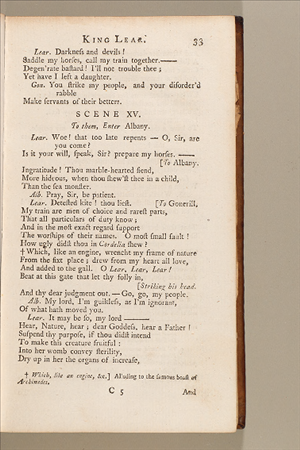 KING LEAR. 33
Lear. Darkneſs and devils!
Saddle my horſes, call my train together.——
Degen'rate baſtard! I'll not trouble thee;
Yet have I left a daughter.
Gon. You ſtrike my people, and your diſorder'd
rabble
Make ſervants of their betters.
SCENE XV.
To them, Enter Albany.
Lear. Woe! that too late repents — O, Sir, are
you come?
Is it your will, ſpeak, Sir? prepare my horſes. ——
[To Albany.
Ingratitude! Thou marble-hearted fiend,
More hideous, when thou ſhew'ſt thee in a child,
Than the ſea monſter.
Alb. Pray, Sir, be patient.
Lear. Deteſted kite! thou lieſt. [To Gonerill,
My train are men of choice and rareſt parts,
That all particulars of duty know;
And in the moſt exact regard ſupport
The worſhips of their names. O moſt ſmall fault!
How ugly didſt thou in Cordelia ſhew?
† Which, like an engine, wrencht my frame of nature
From the fixt place; drew from my heart all love,
And added to the gall. O Lear, Lear, Lear!
Beat at this gate that let thy folly in,
[Striking his head.
And thy dear judgment out.—Go, go, my people.
Alb. My lord, I'm guiltleſs, as I'm ignorant,
Of what hath moved you.
Lear. It may be ſo, my lord ———
Hear, Nature, hear; dear Goddeſs, hear a Father!
Suſpend thy purpoſe, if thou didſt intend
To make this creature fruitful:
Into her womb convey ſterility,
Dry up in her the organs of increaſe,
† Which, like an engine, &c.] Alluding to the famous boaſt of
Archimedes.
C 5 And